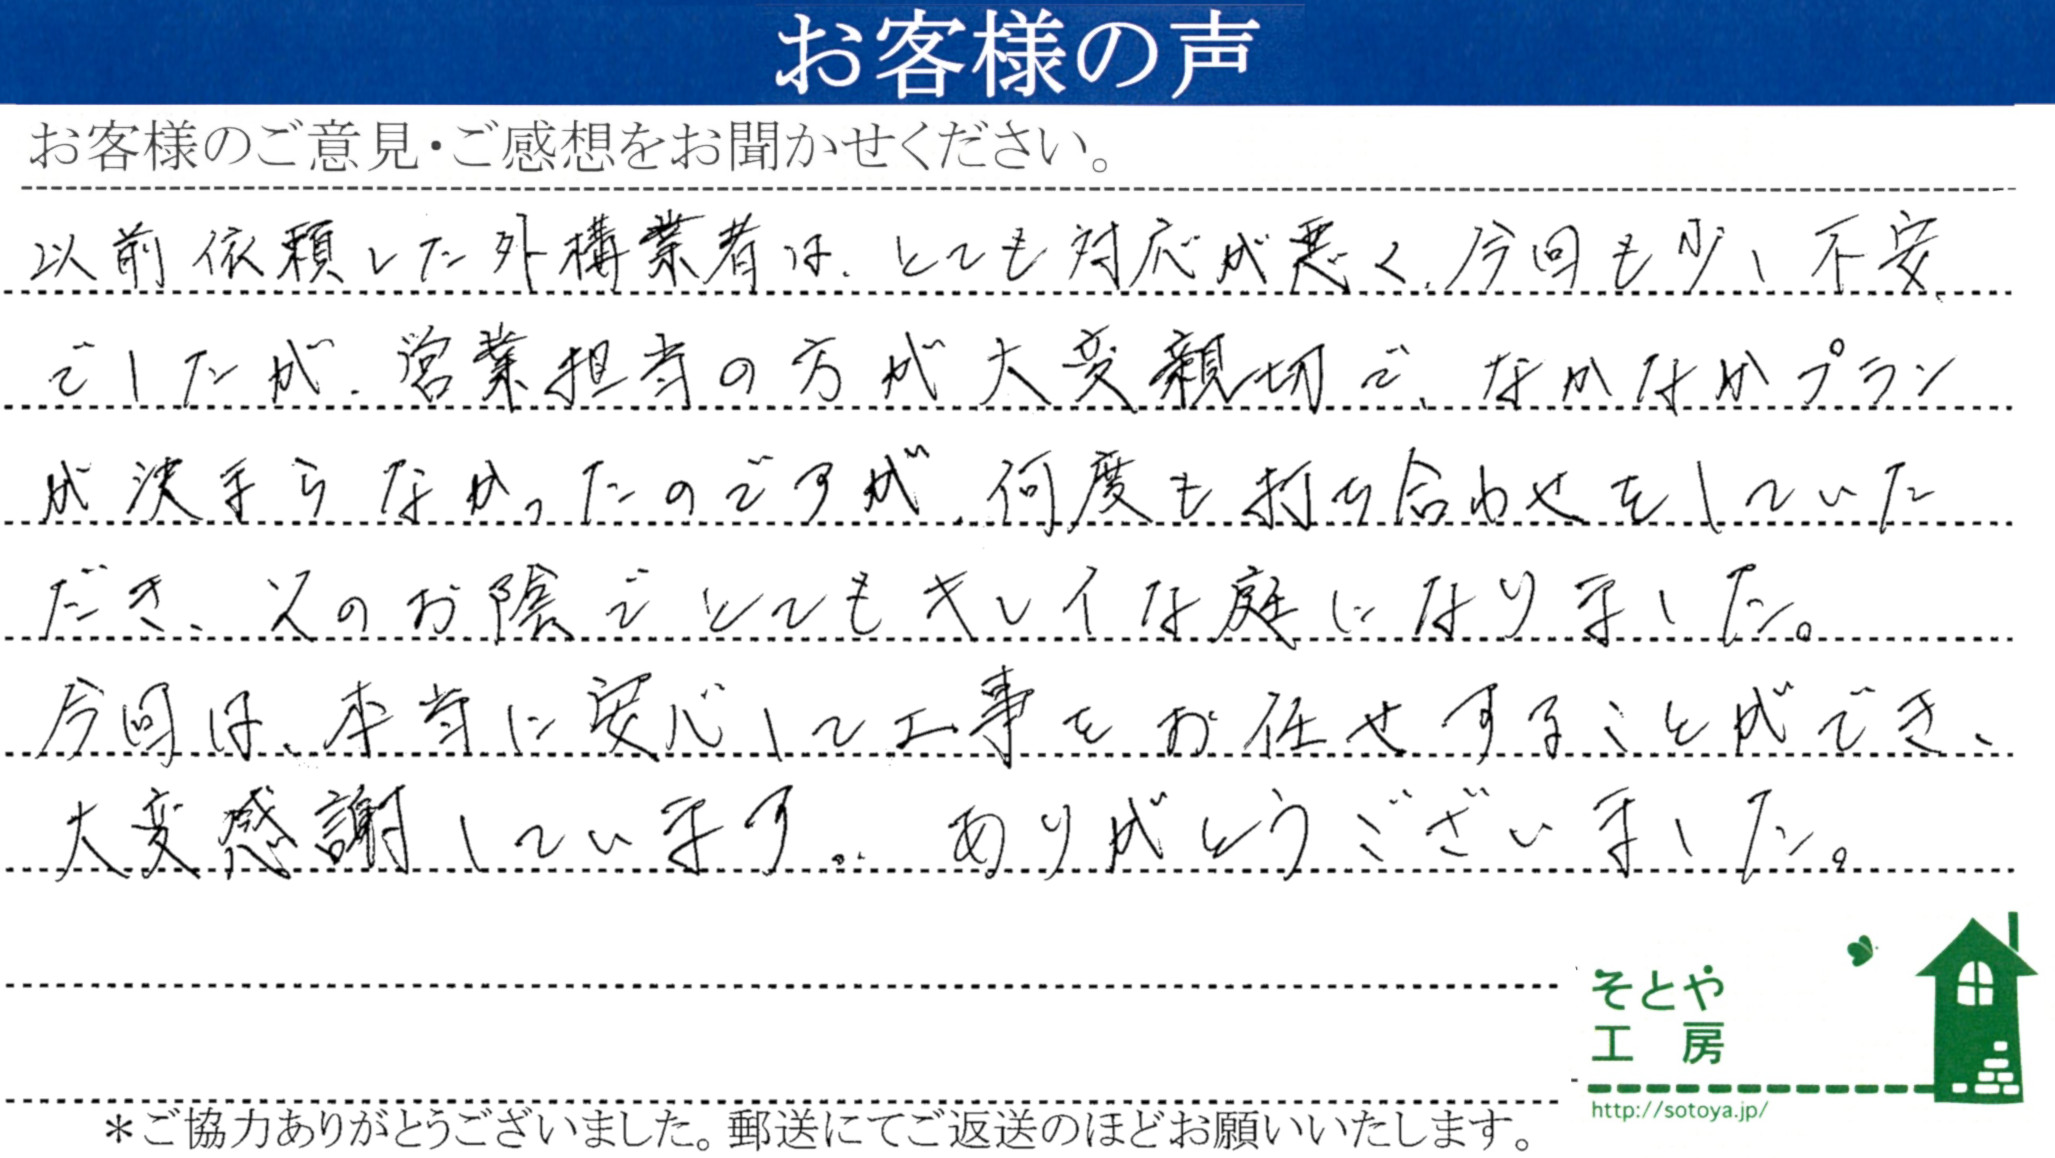 お客様の声
お客様のご意見・ご感想をお聞かせください。
以前依頼した外構業者は、とても対応が悪く、今回も少し不安
でしたが、営業担当の方が大変親切で、なかなかプラン
が決まらなかったのですが、何度も打ち合わせをしていた
だき、そのお陰でとてもキレイな庭になりました。
今回は、本当に安心して工事をお任せすることができ、
大変感謝しています。ありがとうございました。
そとや
工房
http://sotoya.jp/
＊ご協力ありがとうございました。郵送にてご返送のほどお願いいたします。